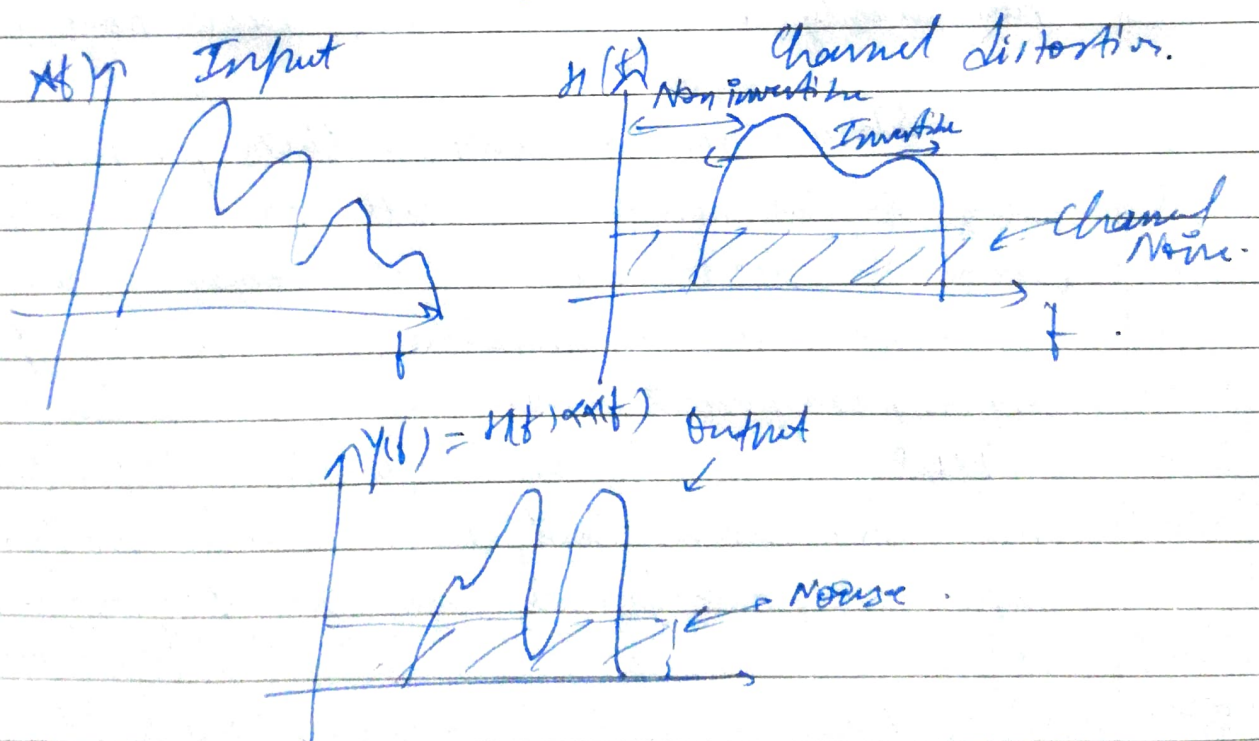 X(f) Input
H(f) Channel distortion.
Non invertible
Invertible
Channel
Noise.
f
f
Y(f) = H(f) X(f) Output
Noise.